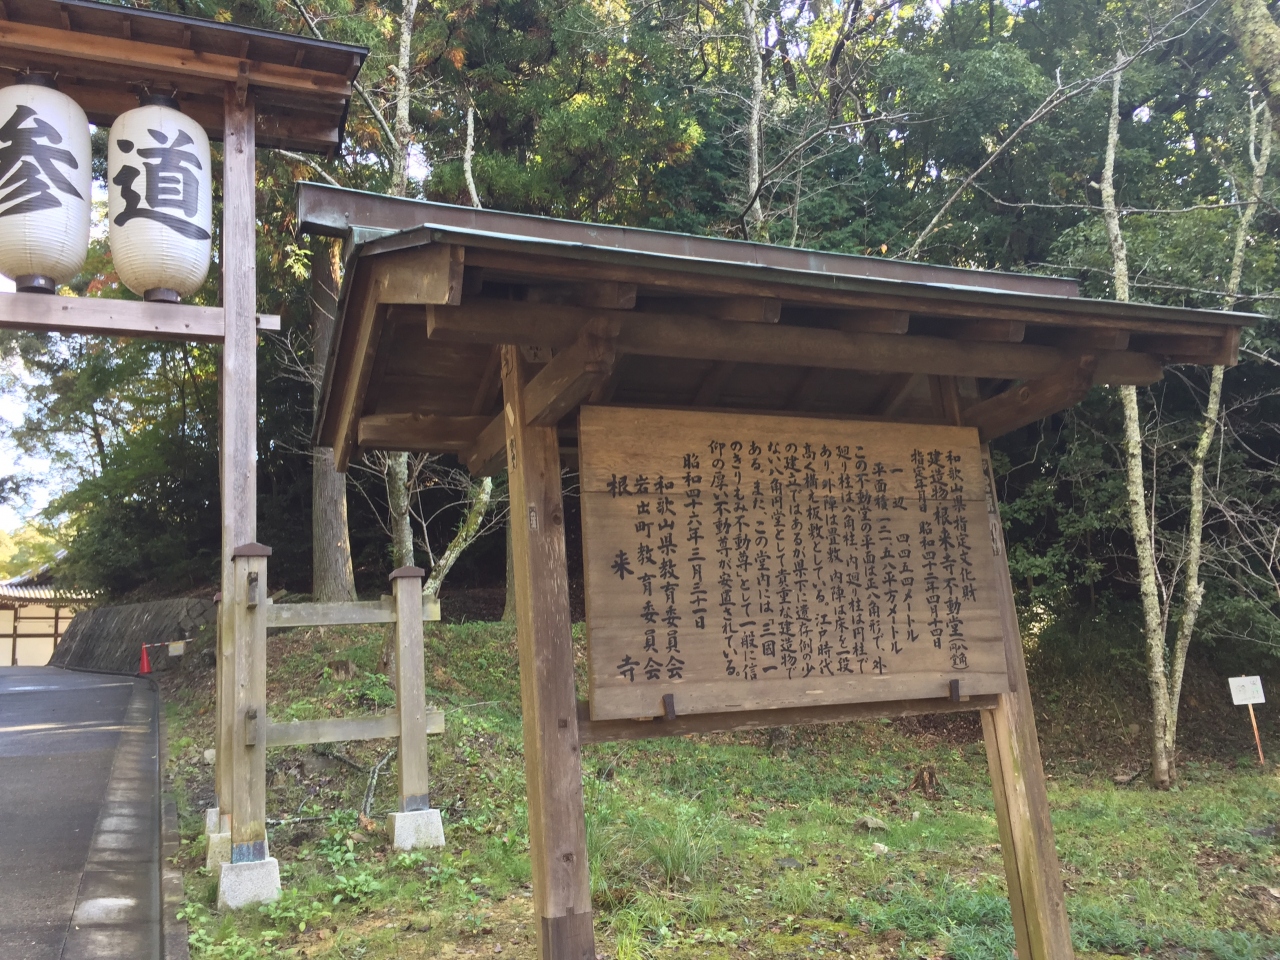 参道
和歌山県指定文化財
建造物 根来寺不動堂(八角円堂)
指定年月日 昭和四十三年四月十四日
一辺 四.四五四メートル
平面積 一二一.五八平方メートル
この不動堂の平面は正八角形で、外
廻り柱は八角柱、内廻り柱は円柱で
あり外陣は畳敷、内陣は床を一段
高く構え板敷としてる。江戸時代
の建立ではあるが県下に遺存例の少
ない八角円堂として貴重な建造物で
ある。また、この堂内には、三国一
のきりもみ不動尊として一般に信
仰の厚い不動尊が安置されている。
昭和四十六年三月三十一日
和歌山県教育委員会
岩出町教育委員会
根来寺